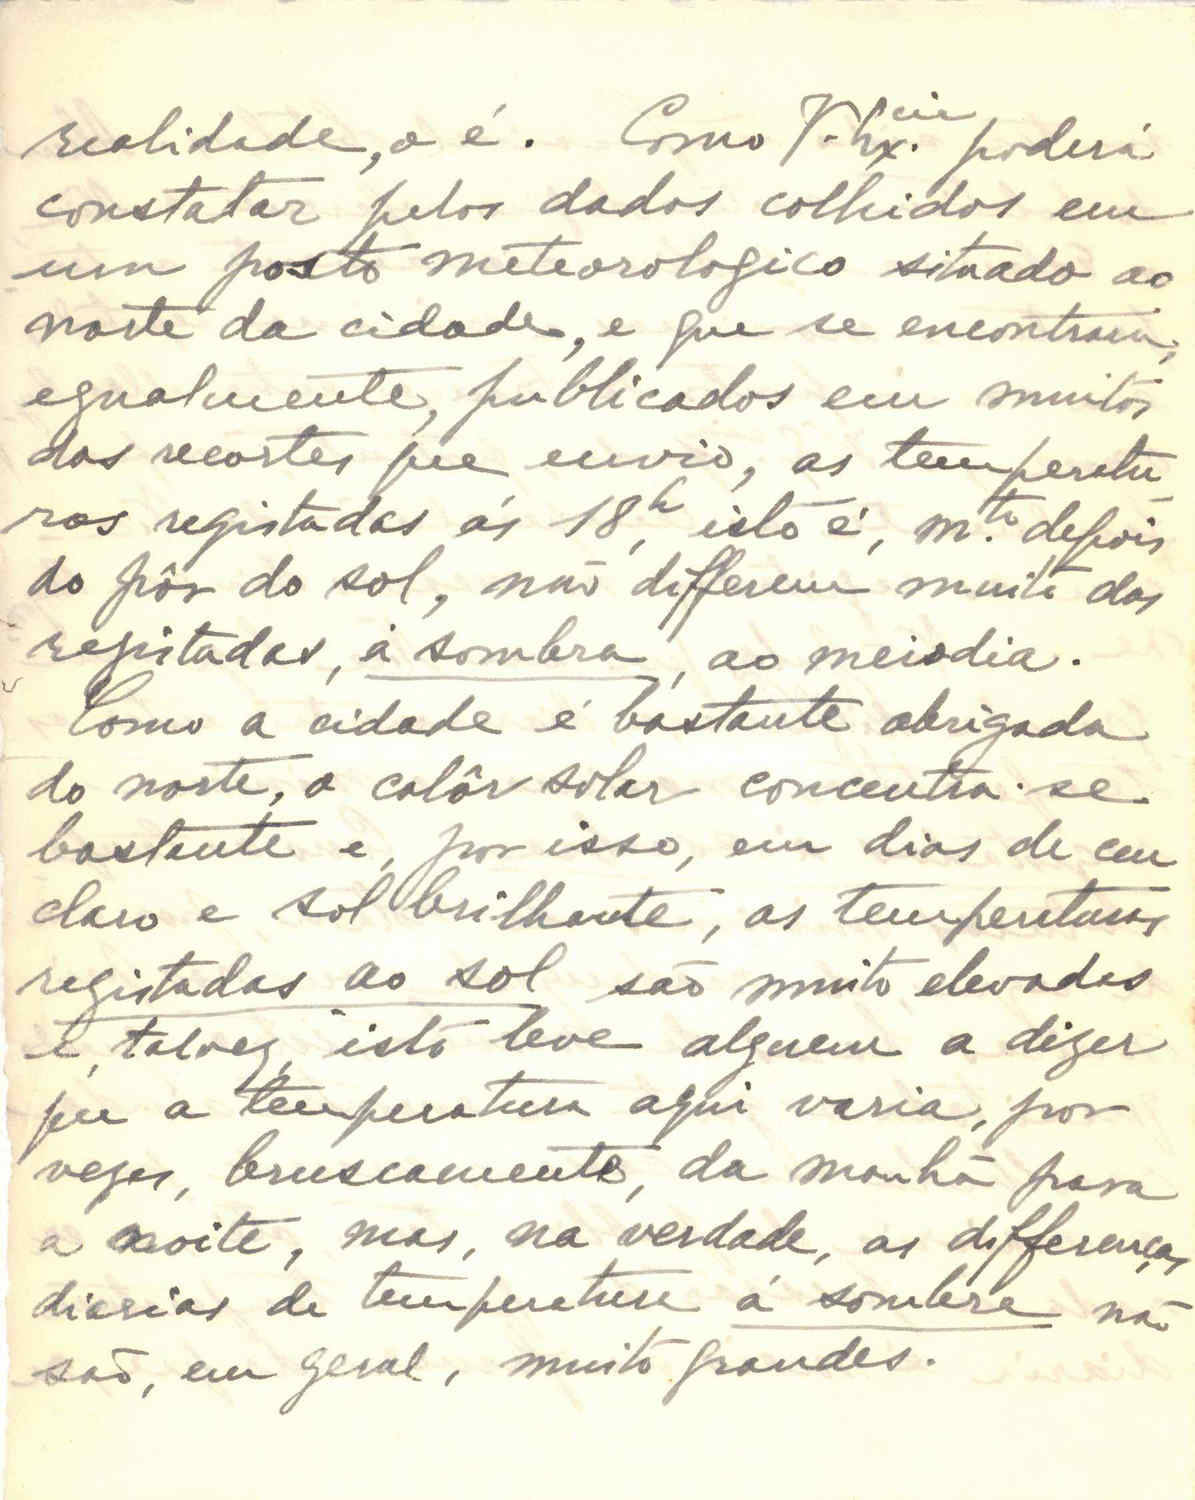 realidade, o é. Como V. Ex.cia poderá
constatar pelos dados colhidos em
um posto meteorologico situado ao
norte da cidade, e que se encontram,
egualmente, publicados em muitos
dos recortes que envio, as temperatu-
ras registadas ás 18h, isto é, m.to depois
do pôr do sol, não differem muito das
registadas, á sombra, ao meiodia.
Como a cidade é bastante abrigada
do norte, o calôr solar concentra-se
bastante e, por isso, em dias de ceu
claro e sol brilhante, as temperaturas
registadas ao sol são muito elevadas
e, talvez, isto leve alguem a dizer
que a temperatura aqui varia, por
vezes, bruscamente, da manhã para
a noite, mas, na verdade, as differenças
diarias de temperatura á sombra não
são, em geral, muito grandes.